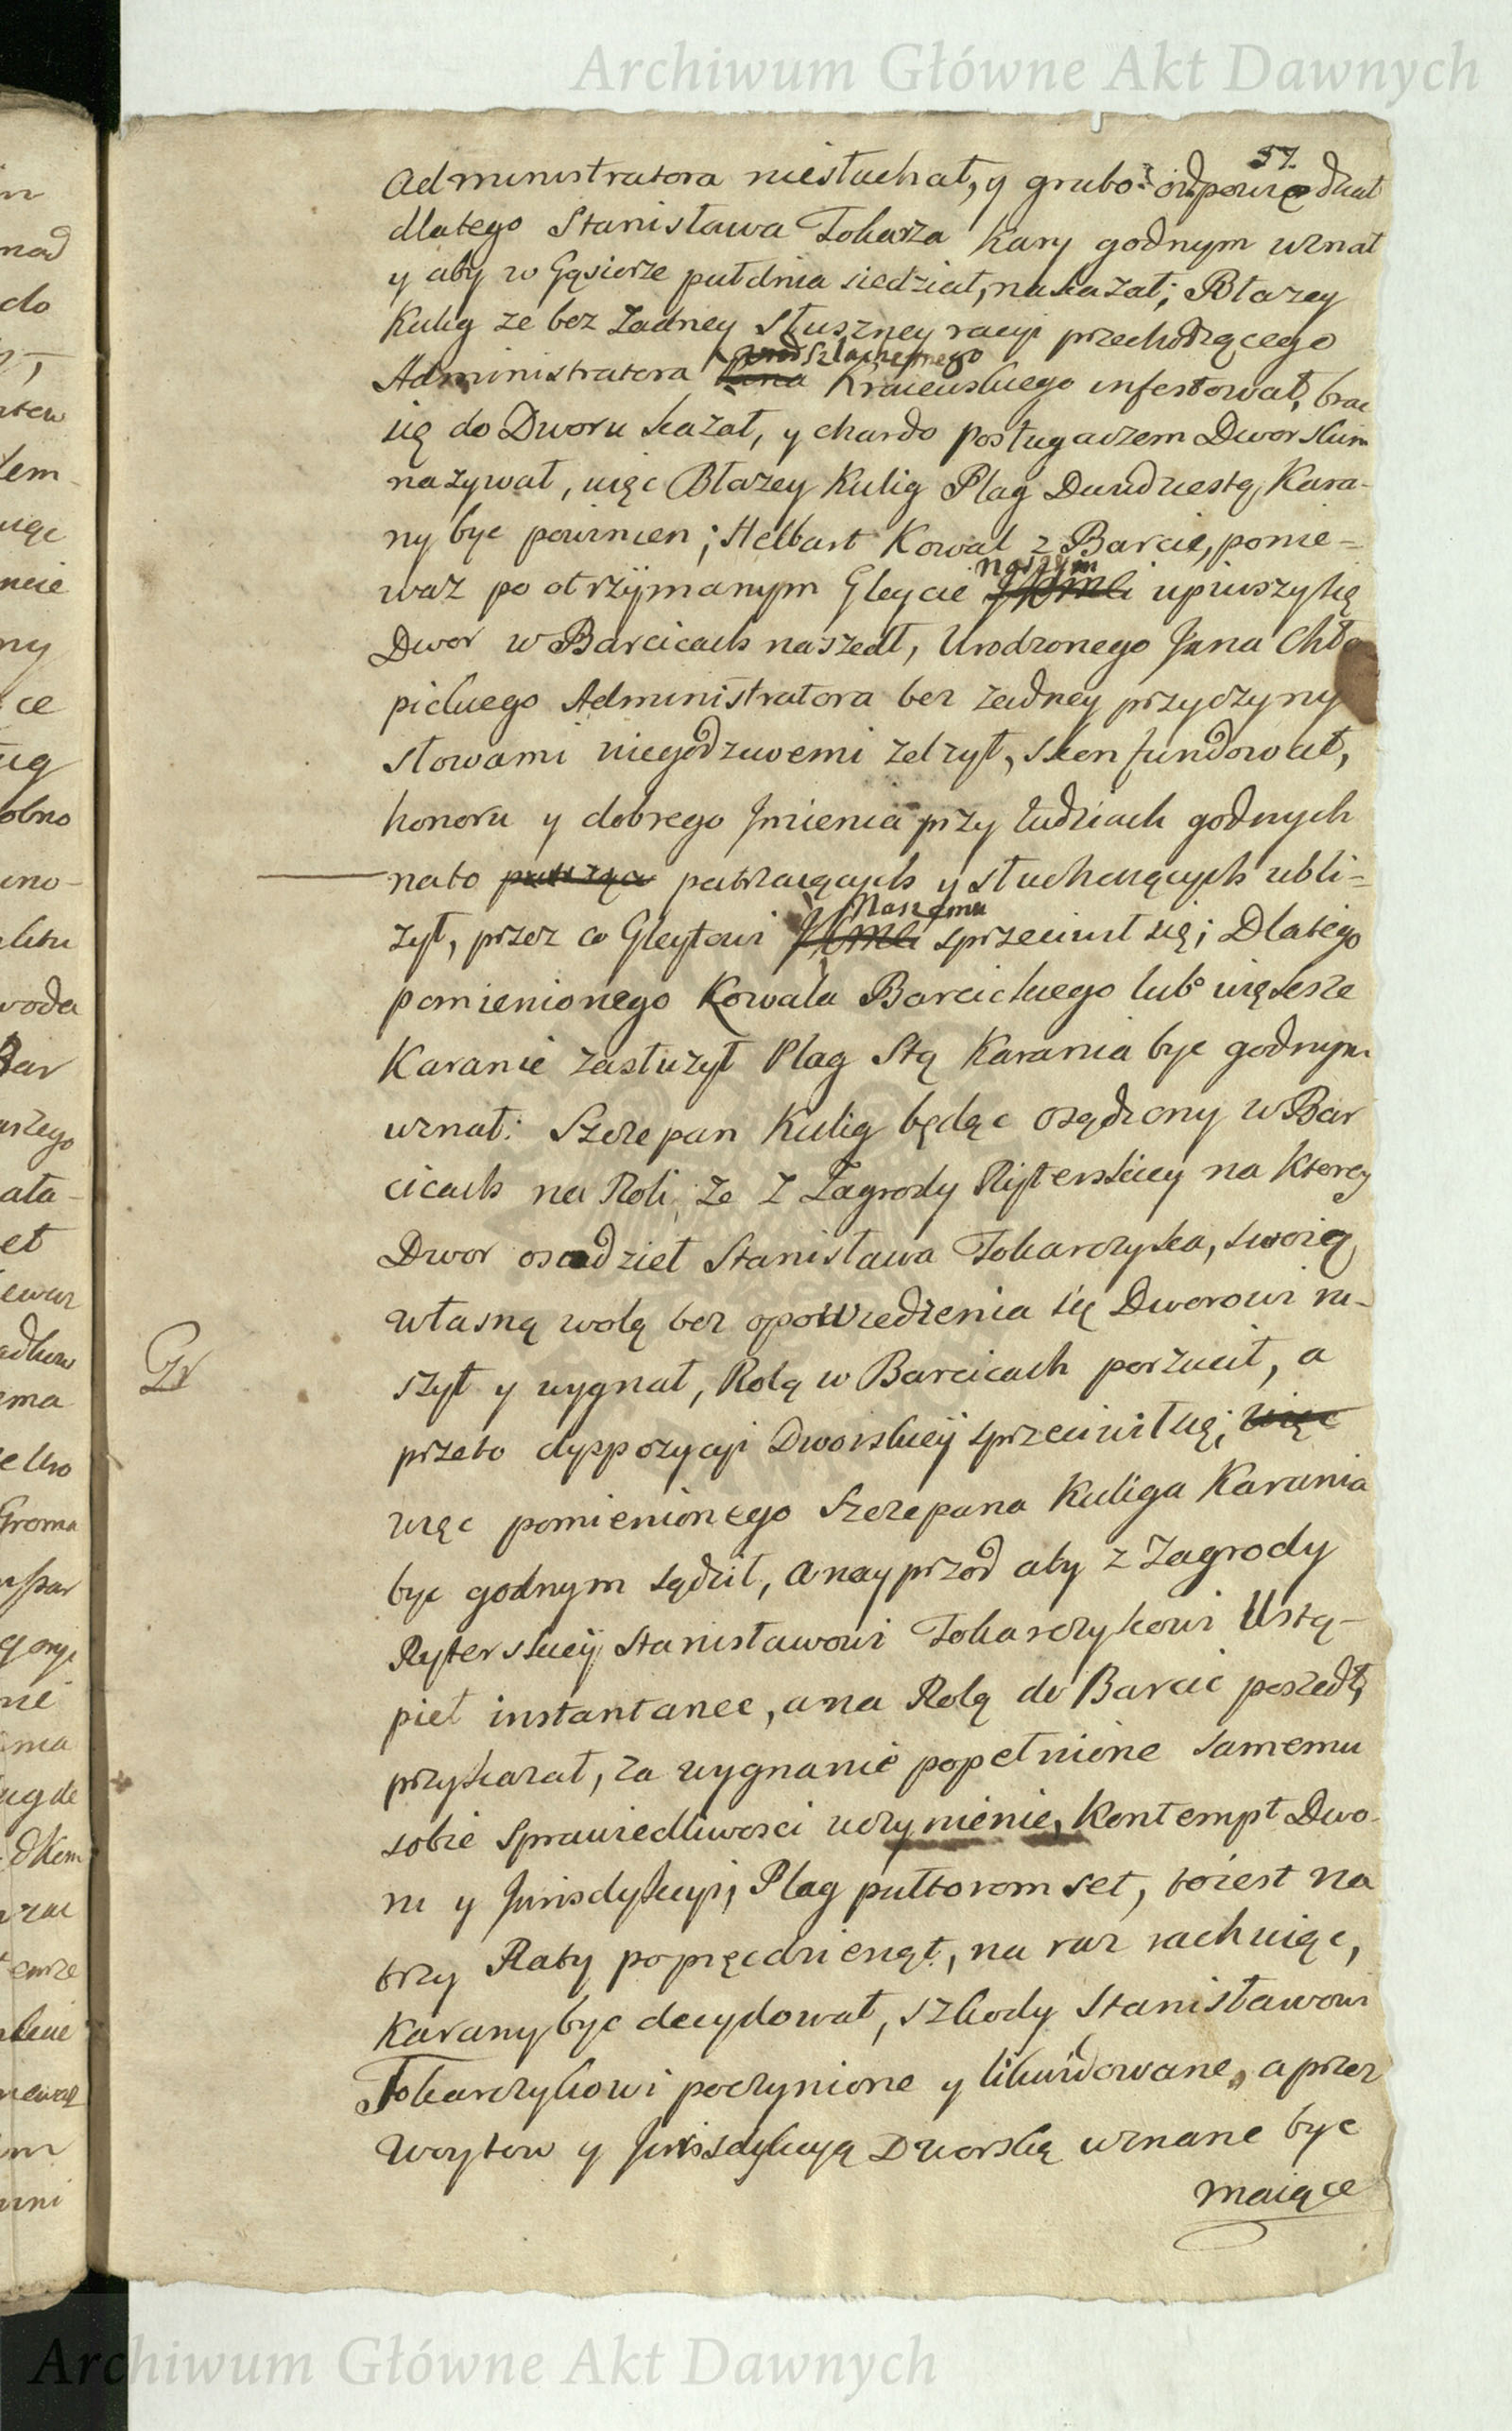 Archiwum Główne Akt Dawnych
57.
Administratora niesłuchał, y grubo odpowiedział
dlatego Stanisława Tokarza Kary godnym uznał
y aby w Gąsiorze puł dnia siedział, nakazał; Błazey
Kulig ze bez Zadney Słuszney racyi przechodzącego
Szlachetnego
Administratora Pana Kraiewskiego infestował, brac
się do Dworu kazał, y chardo posługaczem Dworskim
nazywał, więc Błazey Kulig Plag Dwudziestą Kara-
ny byc powinien; Helbart Kowal z Barcic, ponie=
naszym
waz po otrzÿmanym Gleycie JKMci upiwszysię
Dwor w Barcicach naszedł, Urodzonego Jana Chło
pickiego Administratora bez zadney przyczyny
słowami niegodziwemi zelzył, skonfundował,
honoru y dobrego Jmienia przy ludziach godnych
nato patrząc patrzaiących y słuchaiących ubli=
Naszemu
zył, przez co Gleytowi JKMci sprzeciwił się; Dlatego
pomienionego Kowala Barcickiego lubo większe
Karanie zasłuzył Plag Stą Karania byc godnym
uznał: Szczepan Kulig będąc osądzony w Bar
cicach na Roli, ze z Zagrody Ryterskiey na Ktorey
Dwor osadził Stanisława Tokarczyka, swoią
własną wolą bez opowiedzenia się Dworowi ru-
szył y wygnał, Rolą w Barcicach porzucił, a
przeto dyspozycyi Dworskieÿ sprzeciwił się; więc
więc pomienionego Szczepana Kuliga Karania
byc godnym sądził, a nayprzod aby z Zagrody
Ryterskieÿ Stanisławowi Tokarczykowi Ustą-
pieł instantanee, a na Rolą do Barcic poszedł,
przykazał, za wygnanie popełnione samemu
sobie sprawiedliwosci uczynienie, Kontempt Dwo-
ru y Jurisdykcyi, Plag pułtorom set, toiest na
trzy Raty popięcdzienąt, na raz rachuiąc,
Karany byc decydował, szkody Stanisławowi
Tokarczykowi poczynione y likwidowane, a przez
Woytow y Jurisdykcyą Dworską uznane byc
maiące
Archiwum Główne Akt Dawnych